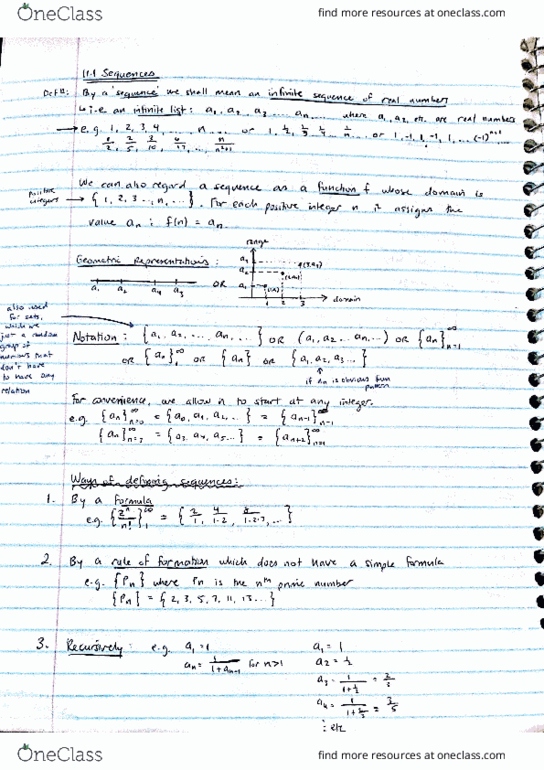 OneClass
find more resources at oneclass.com
11.1 Sequences
Defn: By a 'sequence' we shall mean an infinite sequence of real numbers
i.e an infinite list: a1, a2, a3 .... an, ... where a1, a2, etc. are real numbers
→ e.g. 1, 2, 3, 4, ... n ... or 1, 1/2, 1/3, 1/4 ... 1/n ... or 1, -1, 1, -1, 1, ... (-1)^n+1
1/2, 2/5, 3/10, 4/17, ..., n/n²+1
We can also regard a sequence as a function f whose domain is
positive integers → {1, 2, 3..., n, ...}. For each positive integer n it assigns the
value an : f(n) = an.
range
Geometric Representations:
a1 a2 a4 a3 OR
1 2 3 domain
also used
for sets,
which are
just a random
group of
numbers that
don't have
to have any
relation
Notation: {a1, a2, ... an, ...} OR (a1, a2 ... an, ...) OR {an}∞n=1
OR {an}∞1 OR {an} OR {a1, a2, a3 ...}
if an is obvious from
pattern
For convenience, we allow n to start at any integer.
e.g. {an}∞n=0 = {a0, a1, a2, ...} = {an-1}∞n=1
{an}∞n=3 = {a3, a4, a5...} = {an+2}∞n=1
Ways of defining sequences:
1. By a Formula
e.g. {2^n/n!}∞1 = {2/1, 4/1·2, 8/1·2·3, ...}
2. By a rule of formation which does not have a simple formula
e.g. {Pn} where Pn is the nth prime number
{Pn} = {2, 3, 5, 7, 11, 13...}
3. Recursively: e.g. a1 = 1 a1 = 1
an = 1/1+an-1 for n>1 a2 = 1/2
a3 = 1/1+1/2 = 2/3
a4 = 1/1+2/3 = 3/5
⋮ etc
OneClass
find more resources at oneclass.com